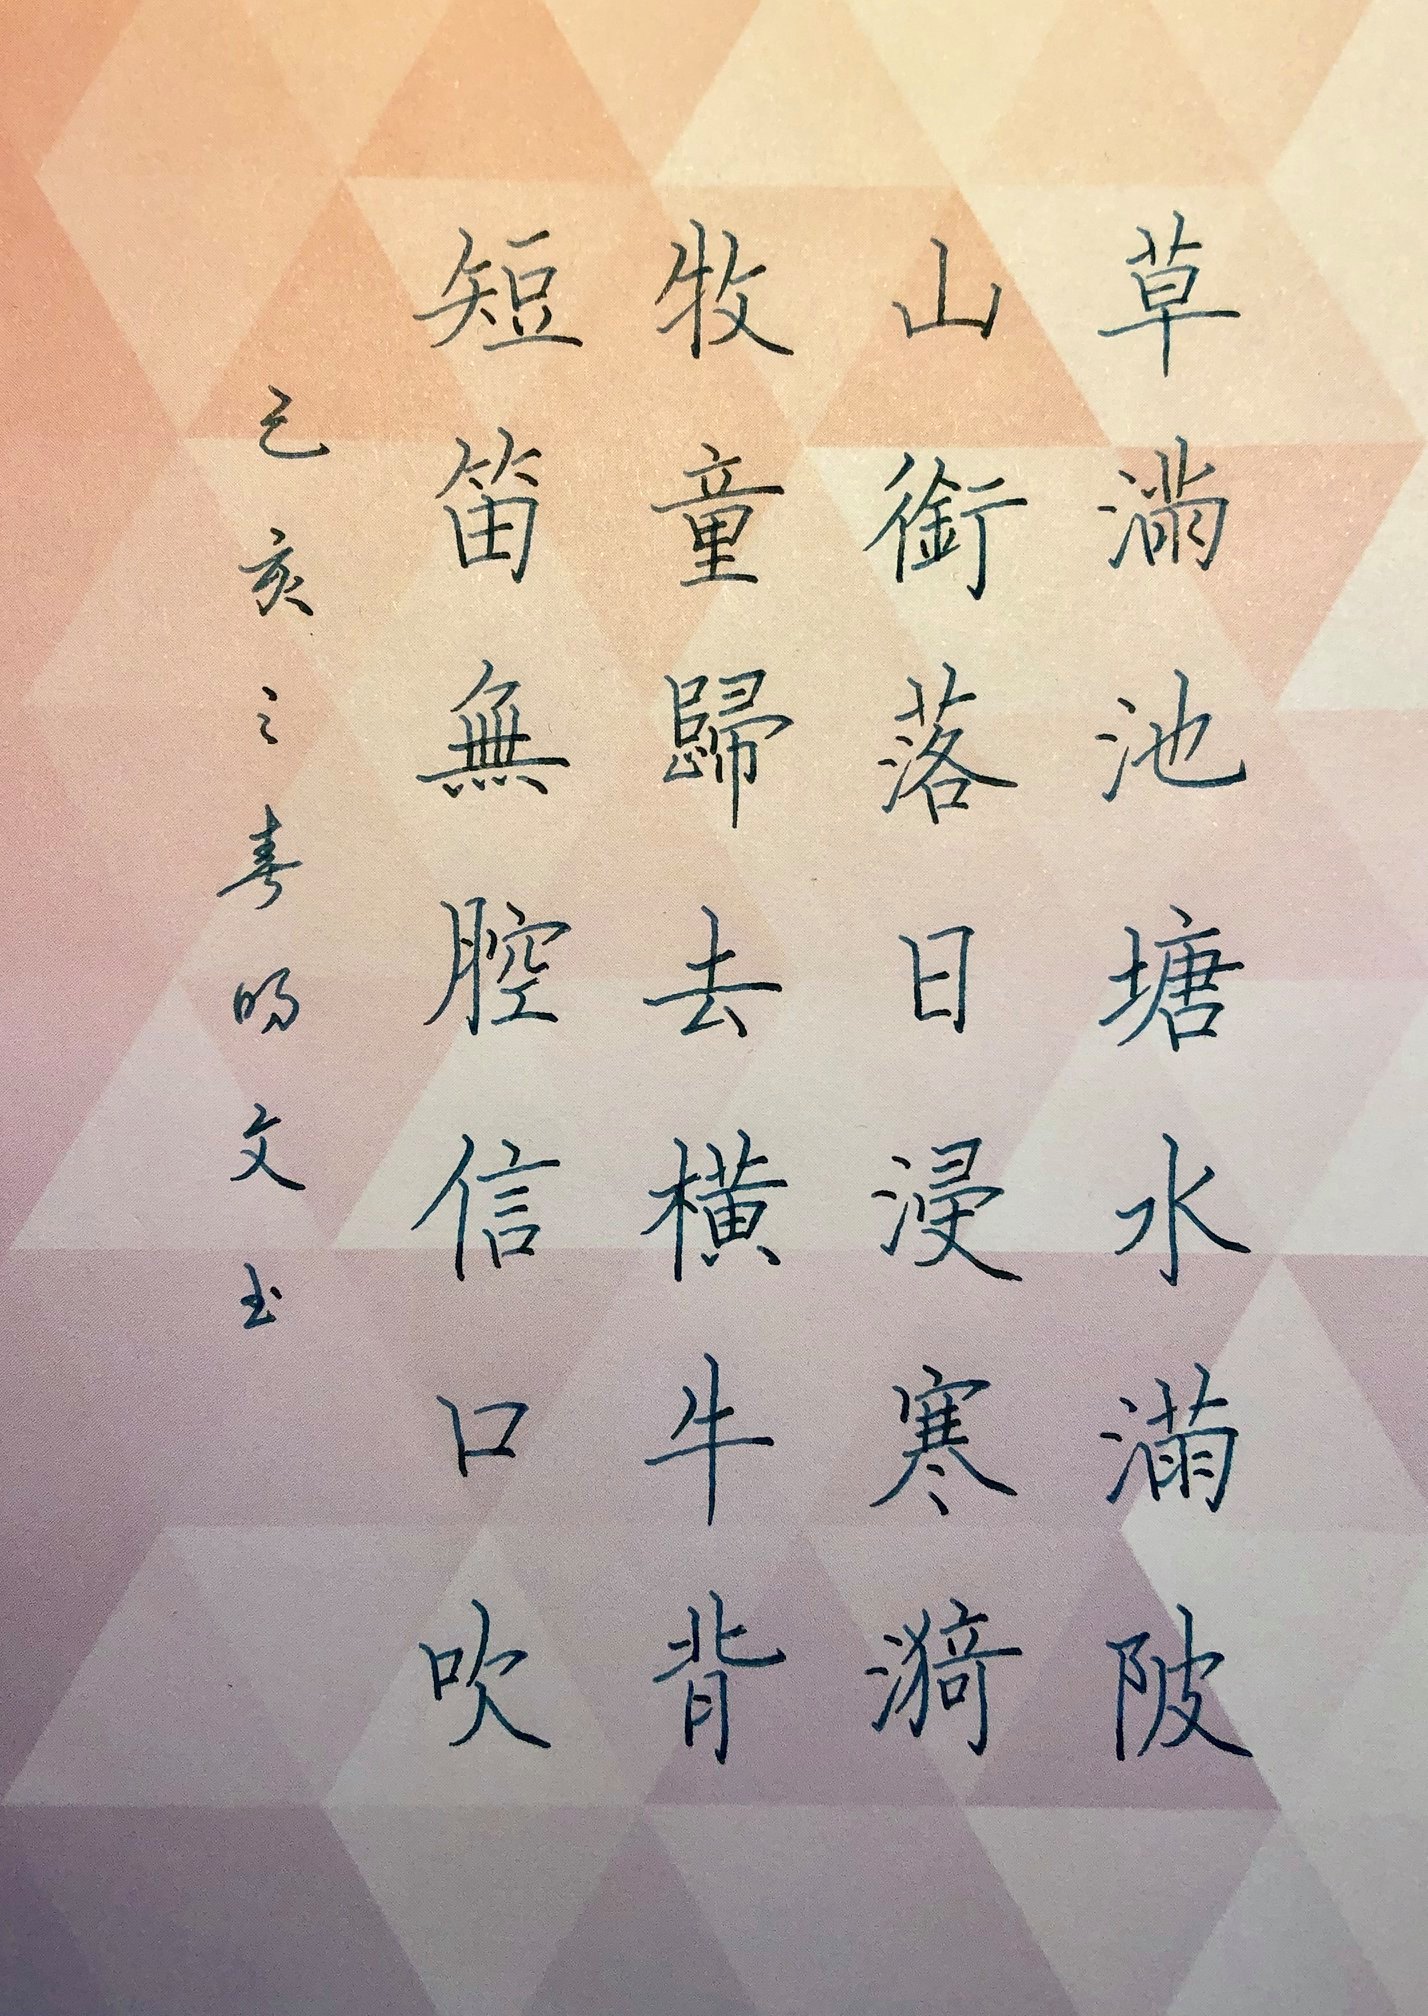 草滿池塘水滿陂
山銜落日浸寒漪
牧童歸去橫牛背
短笛無腔信口吹
己亥之春明文书